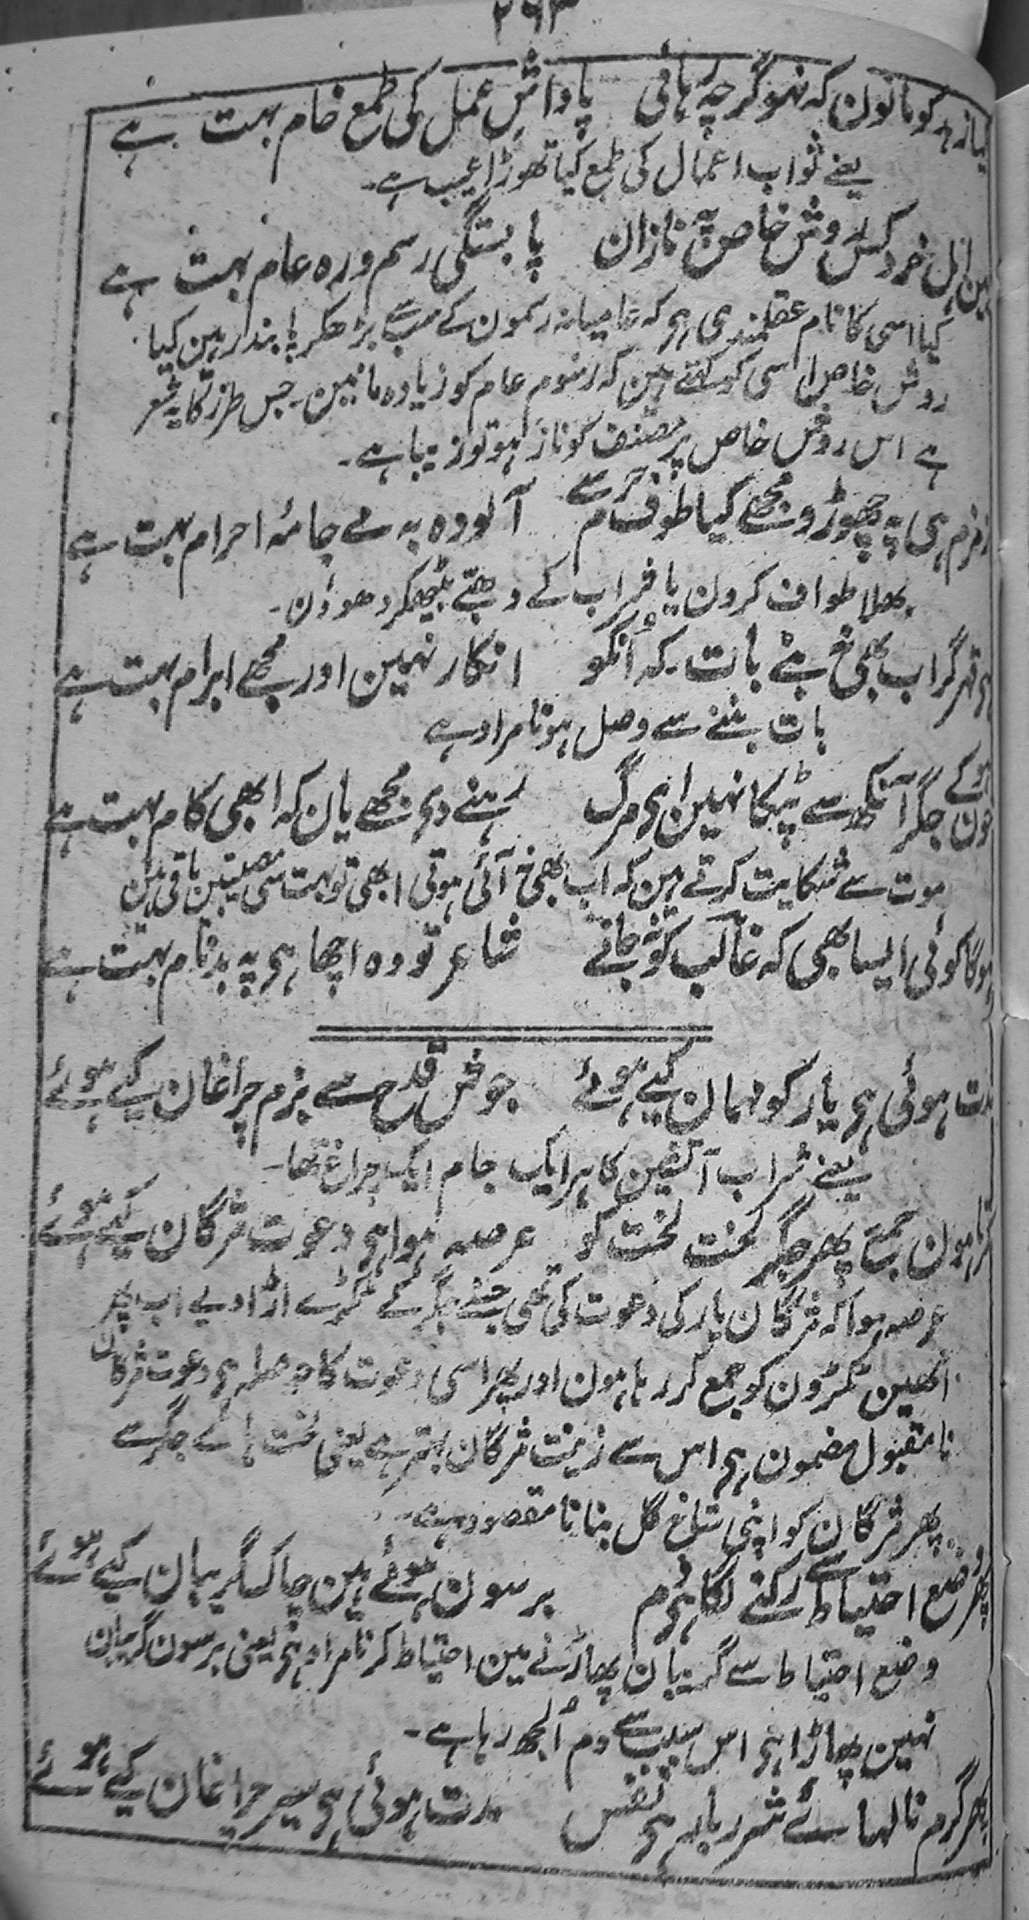 ۲۶۳
کیا زہد کو مانون کہ نہو گرچہ ریائی پاداش عمل کی طمع خام بہت ہے
یعنے ثواب اعمال کی طمع کیا تھوڑا عیب ہے۔
ہین اہل خرد کس روش خاص پہ نازان پابستگی رسم و رہ عام بہت ہے
کیا اسی کا نام عقلمندی ہی کہ عامیانہ رسمون کے سب سے بڑھکر پابند ہین کیا
روش خاص اسی کو کہتے ہین کہ رسوم عام کو زیادہ مانین۔ جس طرز کا یہ شعر
ہے اس روش خاص پر مصنف کو ناز ہو تو زیبا ہے۔
زمزم ہی پہ چھوڑو مجھے کیا طوف حرم سے آلودہ بہ مے جامۂ احرام بہت ہے
بھلا طواف کرون یا شراب کے دھبّے بیٹھکر دھوؤن۔
ہی قہر گر اب بھی نہ بنے بات کہ اُنکو انکار نہین اور مجھے ابرام بہت ہے
بات بننے سے وصل ہونا مراد ہے
خون ہوکے جگر آنکھ سے ٹپکا نہین ای مرگ رہنے دی مجھے یان کہ ابھی کام بہت ہے
موت سے شکایت کرتے ہین کہ اب بھی نہ آئی ہوتی ابھی تو بہت سی مصیبتین باقی ہین
ہوگا کوئی ایسا بھی کہ غالب کو نہ جانے شاعر تو وہ اچھا ہی پہ بدنام بہت ہے
مدت ہوئی ہی یار کو مہمان کیے ہوئے جوش قدح سے بزم چراغان کیے ہوئے
یعنے شراب آتشین کا ہر ایک جام ایک چراغ تھا۔
کرتا ہون جمع پھر جگر لخت لخت کو عرصہ ہوا ہی دعوت مژگان کیے ہوئے
عرصہ ہوا کہ مژگان یار کی دعوت کی تھی جسنے جگر کے ٹکڑے اڑا دیے اب پھر
انھین ٹکڑون کو جمع کر رہا ہون اور پھر اسی دعوت کا حوصلہ ہی دعوت مژگان
نامقبول مضمون ہی اس سے زینت مژگان بہتر ہے یعنی لخت ہائے جگر سے
پھر مژگان کو اپنی شاخ گل بنانا مقصود ہے۔
پھر وضع احتیاط سے رکنے لگا ہی دم برسون ہوئے ہین چاک گریبان کیے ہوئے
وضع احتیاط سے گریبان پھاڑنے مین احتیاط کرنا مراد ہی یعنی برسون گریبان
نہین پھاڑا ہی اس سبب سے دم اُلجھ رہا ہے۔
پھر گرم نالہائے شرر بار ہی نفس مدت ہوئی ہی سیر چراغان کیے ہوئے